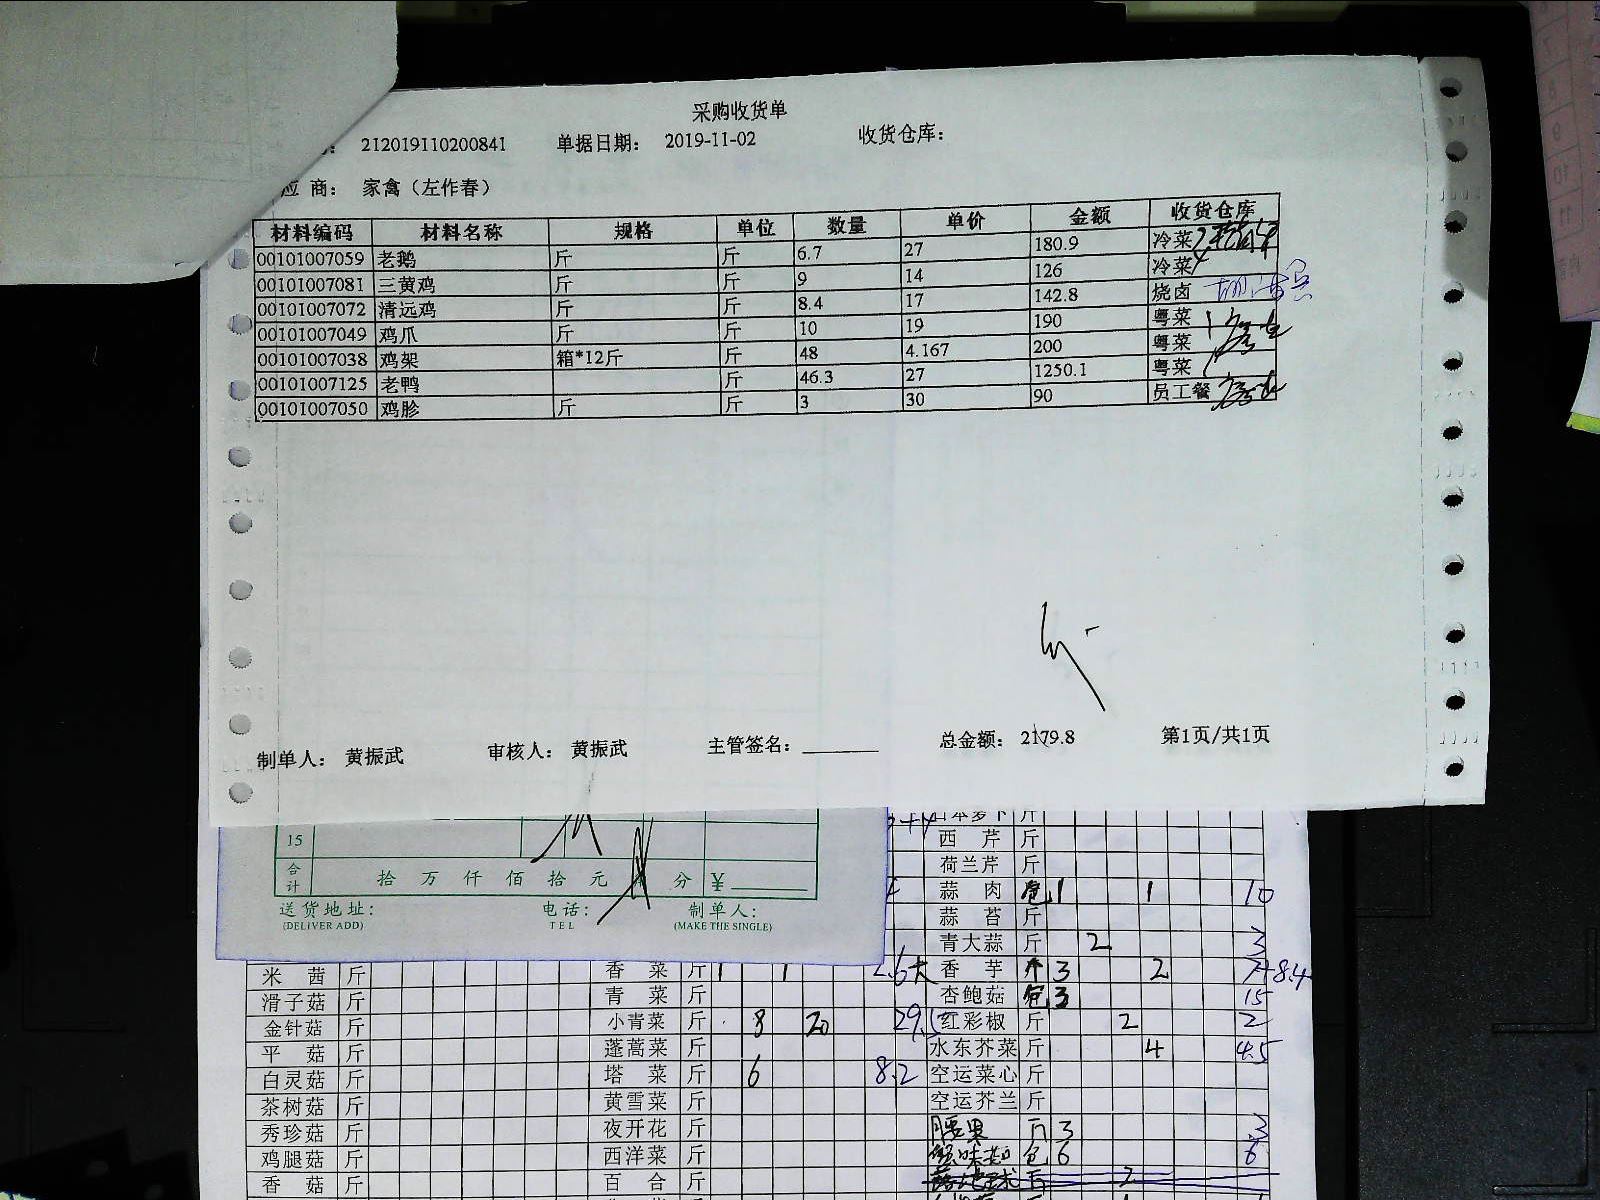 采购收货单
212019110200841 单据日期: 2019-11-02 收货仓库:
应 商: 家禽(左作春)
材料编码 材料名称 规格 单位 数量 单价 金额 收货仓库
00101007059 老鹅 斤 斤 6.7 27 180.9 冷菜
00101007081 三黄鸡 斤 斤 9 14 126 冷菜
00101007072 清远鸡 斤 斤 8.4 17 142.8 烧卤
00101007049 鸡爪 斤 斤 10 19 190 粤菜
00101007038 鸡架 箱*12斤 斤 48 4.167 200 粤菜
00101007125 老鸭 斤 46.3 27 1250.1 粤菜
00101007050 鸡胗 斤 斤 3 30 90 员工餐
制单人: 黄振武 审核人: 黄振武 主管签名: 总金额: 2179.8 第1页/共1页
15
合计 拾 万 仟 佰 拾 元 分 ¥
送货地址: 电话: 制单人:
(DELIVER ADD) TEL (MAKE THE SINGLE)
西 芹 斤
荷兰芹 斤
蒜 肉 包 1 1 10
蒜 苔 斤
青大蒜 斤 2 3
米 茜 斤 香 菜 斤 1 1 香 芋 个 3 2
滑子菇 斤 青 菜 斤 杏鲍菇 包 3 15
金针菇 斤 小青菜 斤 8 20 红彩椒 斤 2 2
平 菇 斤 蓬蒿菜 斤 水东芥菜 斤 4 4.5
白灵菇 斤 塔 菜 斤 6 8.2 空运菜心 斤
茶树菇 斤 黄雪菜 斤 空运芥兰 斤
秀珍菇 斤 夜开花 斤 腰果 斤 3 3
鸡腿菇 斤 西洋菜 斤 包 6 6
香 菇 斤 百 合 斤 2